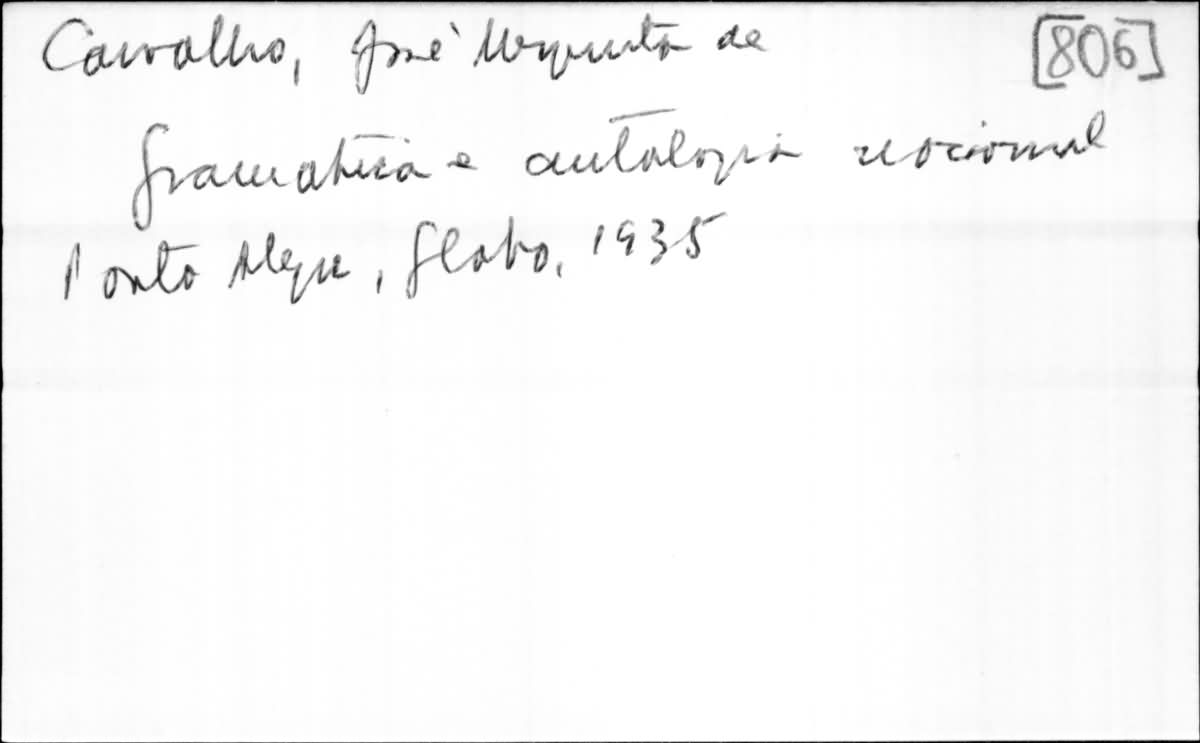 Carvalho, José Mesquita de [806]
Gramatica e antologia nacional
Porto Alegre, Globo, 1935